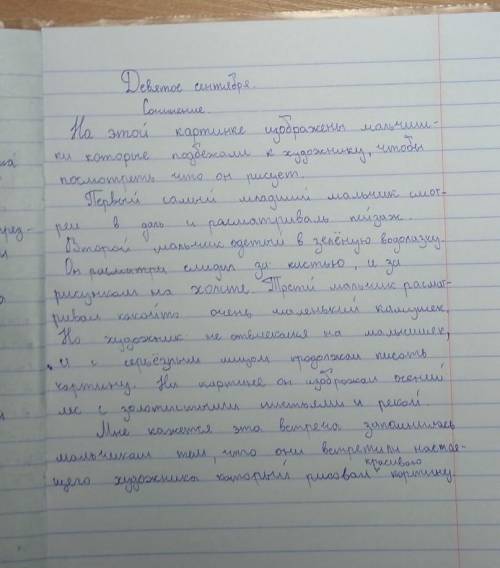 Девятое сентября.
Сочинение.
На этой картинке изображены мальчиш-
ки которые подбежали к художнику, чтобы
посмотреть что он рисует.
Первый самый младший мальчик смот-
рел в даль и расматриваль пейзаж.
Второй мальчик одетый в зелёную водолазку.
Он расматрел следил за кистью, и за
рисунком на холсте. Третий мальчик расмат-
ривал какойто очень маленький камушек.
Но художник не отвлекался на мальчишек,
и с серьёзным лицом продолжал писать
картину. На картине он изображал осений
лес с золотистыми листьями и рекой
Мне кажется эта встреча запомнилась
мальчикам тем, что они встретили настоя-
красивого
щего художника который рисовал картину.